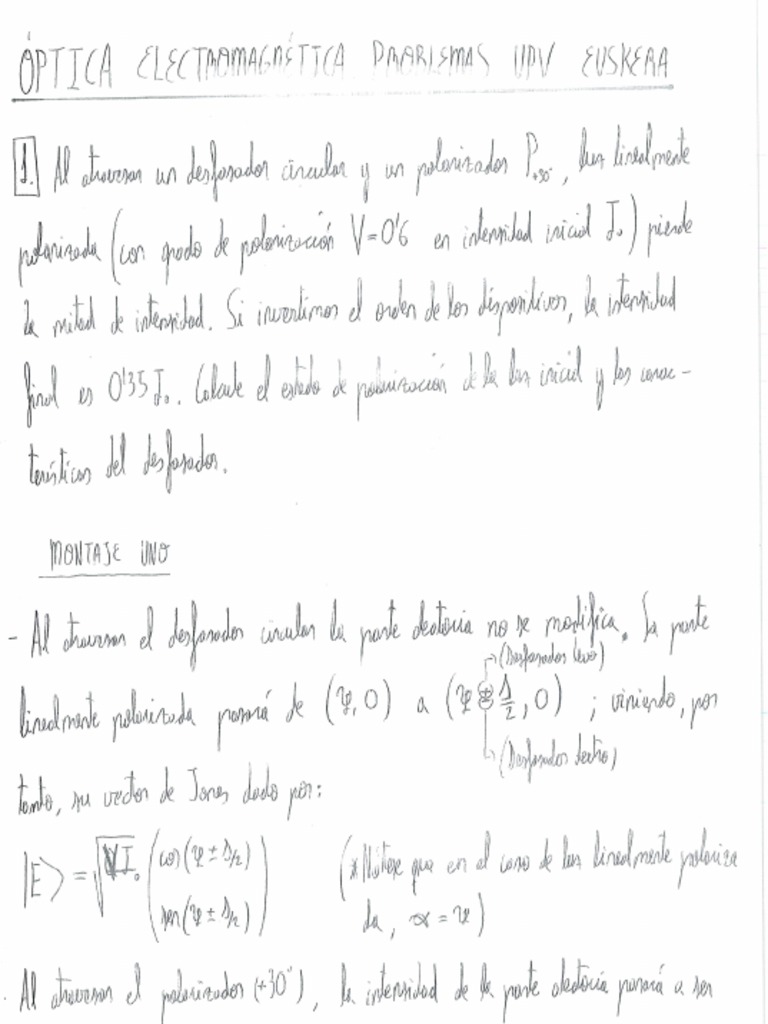 ÓPTICA ELECTROMAGNÉTICA PROBLEMAS UPV EUSKERA
1. Al atravesar un desfasador circular y un polarizador P+30°, luz linealmente
polarizada (con grado de polarización V=0'6 en intensidad inicial I₀) pierde
la mitad de intensidad. Si invertimos el orden de los dispositivos, la intensidad
final es 0'35 I₀. Calcule el estado de polarización de la luz inicial y las carac-
terísticas del desfasador.
MONTAJE UNO
- Al atravesar el desfasador circular la parte aleatoria no se modifica. La parte
(Desfasador levo)
linealmente polarizada pasará de (ψ, 0) a (ψ ± Δ/2, 0) ; viniendo, por
(Desfasador dextro)
tanto, su vector de Jones dado por:
|E> = √VI₀ (cos(ψ ± Δ/2) sen(ψ ± Δ/2))
(*Nótese que en el caso de luz linealmente polariza
da, α = ψ)
· Al atravesar el polarizador (+30°), la intensidad de la parte aleatoria pasará a ser